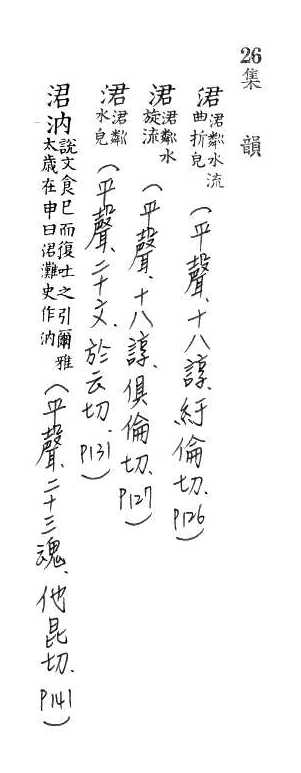 26集韻
涒涒鄰水流曲折皃(平聲、十八諄、紆倫切、P126)
涒涒鄰水旋流(平聲、十八諄、俱倫切、P127)
涒涒鄰水皃(平聲、二十文、於云切、P131)
涒汭說文食巳而復吐之引爾雅太歲在申曰涒灘史作汭(平聲、二十三魂、他昆切、P141)